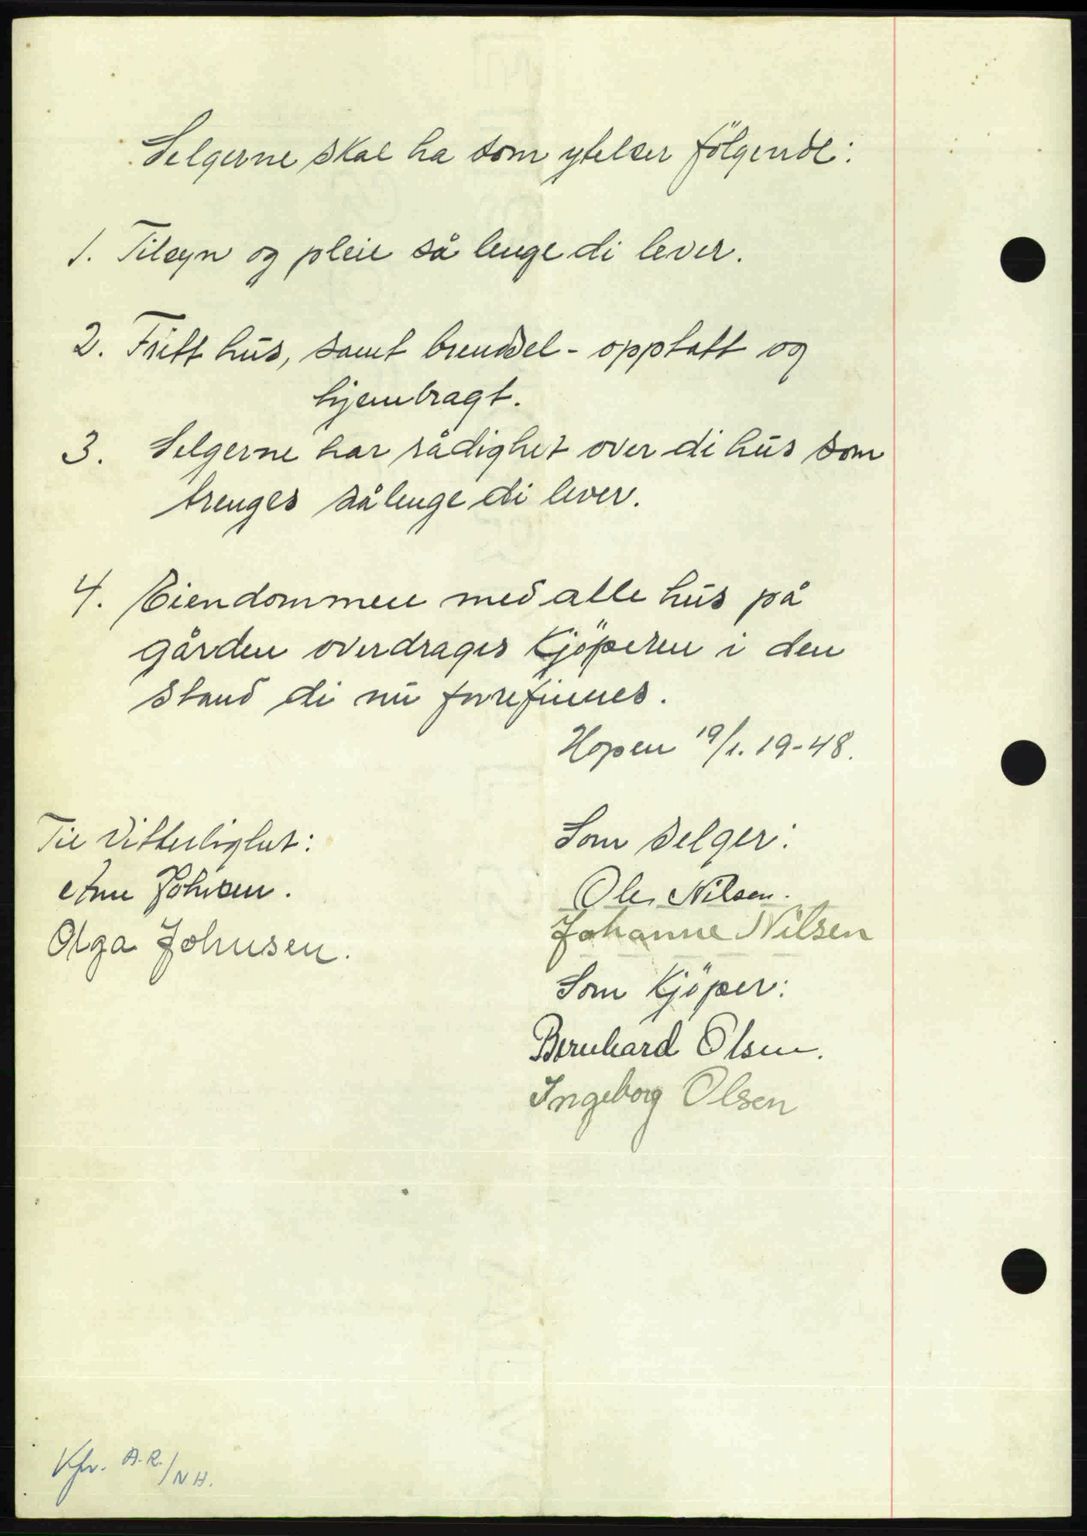 Selgerne skal ha som ytelser følgende:
1. Tilsyn og pleie så lenge di lever.
2. Fritt hus, samt brendsel - opptatt og
hjembragt.
3. Selgerne har rådighet over di hus som
trenges så lenge di lever.
4. Eiendommen med alle hus på
gården overdrages Kjöperen i den
stand di nu forefinnes.
Hopen 19/1. 19-48.
Til Vitterlighet:
Arne Johnsen.
Olga Johnsen.
Som selger:
Ole Nilsen.
Johanne Nilsen
Som Kjöper:
Bernhard Olsen.
Ingeborg Olsen
Kfr. A.R./NH.